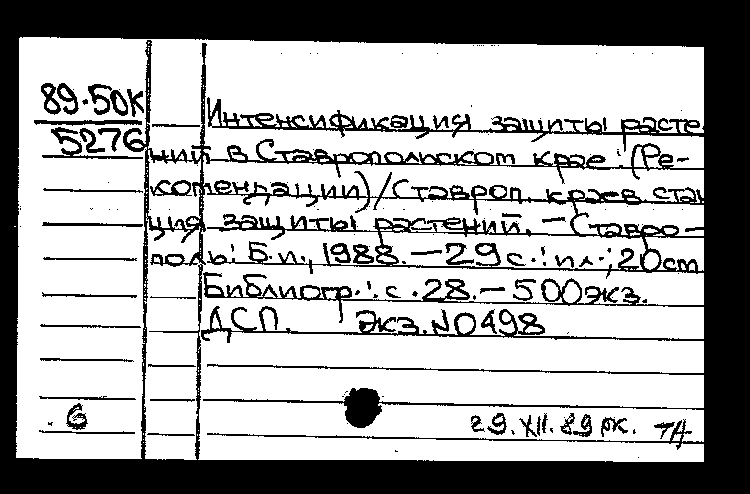 89-50К
5276
Интенсификация защиты расте
ний в Ставропольском крае : (Ре-
комендации) / Ставроп. краев. стан
ция защиты растений. — Ставро-
поль : Б.и., 1988. — 29 с. : ил.; 20 см
Библиогр. : с. 28. — 500 экз.
ДСП. Экз. N0498
6
29.XII.89 рк.